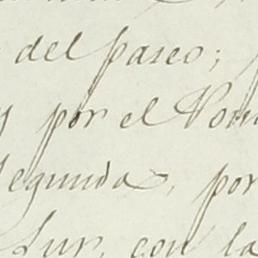 del paseo;
y por el
Segunda, por
Sur, con la